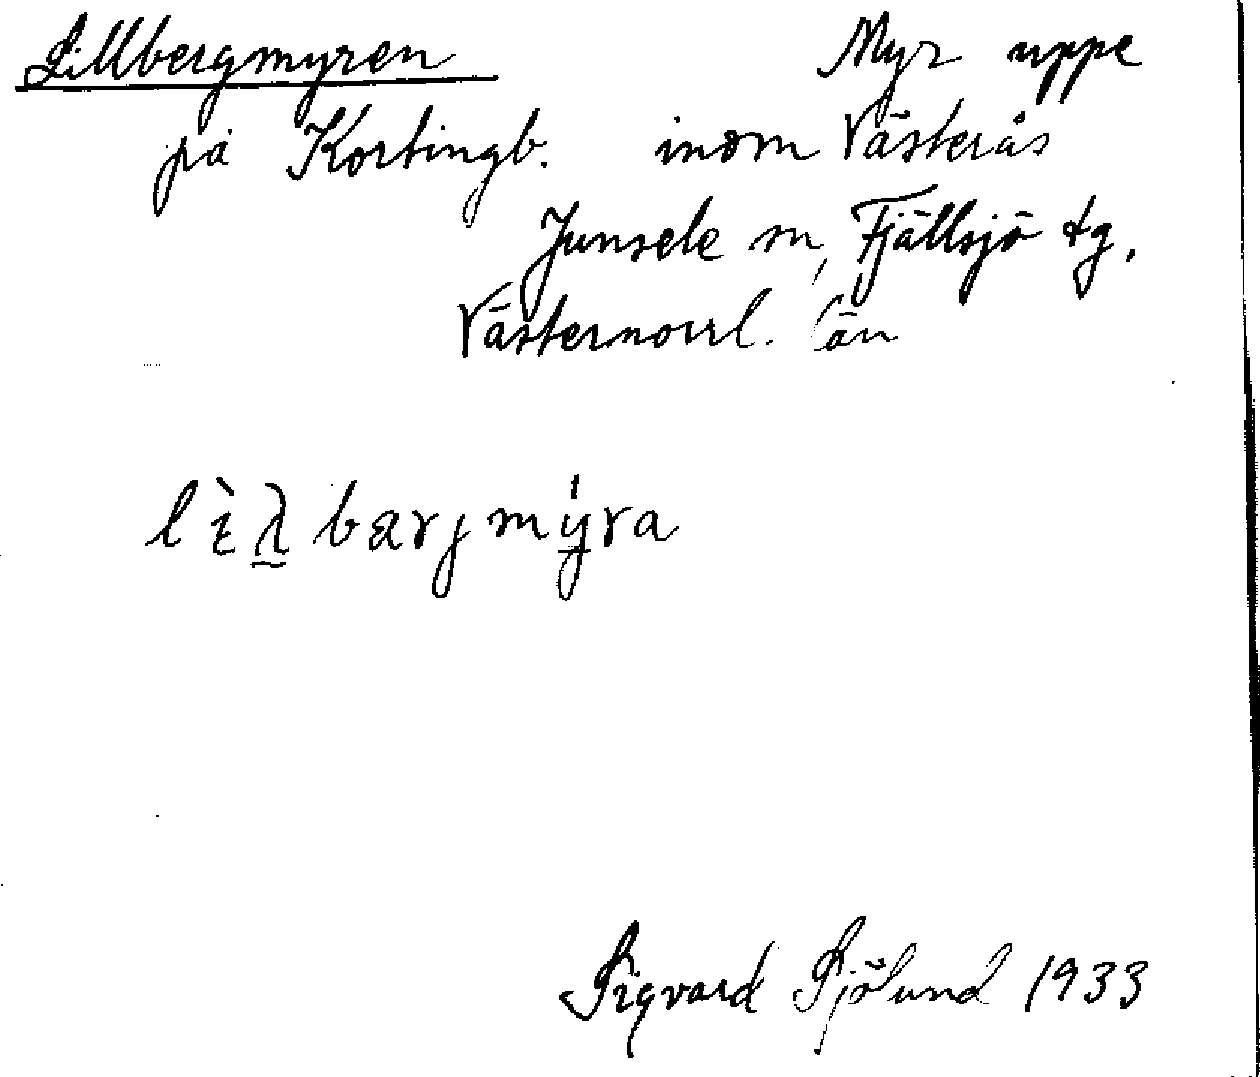 Lillbergmyren Myr uppe
på Kortingb. inom Västerås
Junsele sn, Fjällsjö tg,
Västernorrl. län
lìλ̲bærjmýra
Sigvard Sjölund 1933